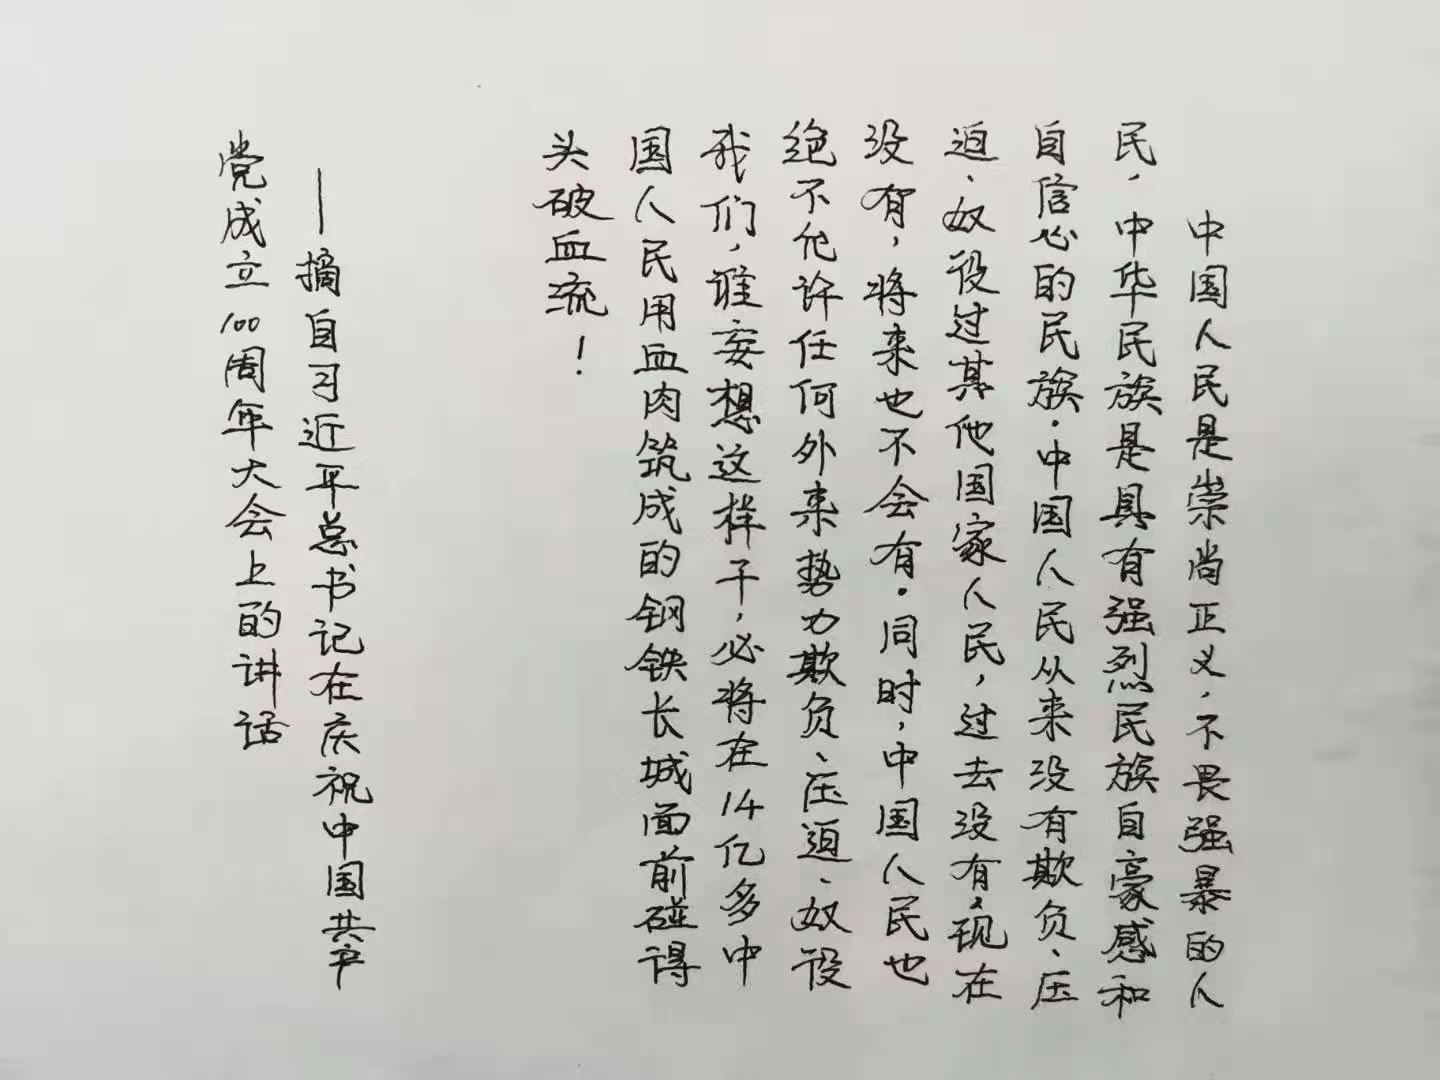 中国人民是崇尚正义，不畏强暴的人
民，中华民族是具有强烈民族自豪感和
自信心的民族。中国人民从来没有欺负、压
迫、奴役过其他国家人民，过去没有，现在
没有，将来也不会有。同时，中国人民也
绝不允许任何外来势力欺负、压迫、奴役
我们，谁妄想这样干，必将在14亿多中
国人民用血肉筑成的钢铁长城面前碰得
头破血流！
——摘自习近平总书记在庆祝中国共产
党成立100周年大会上的讲话